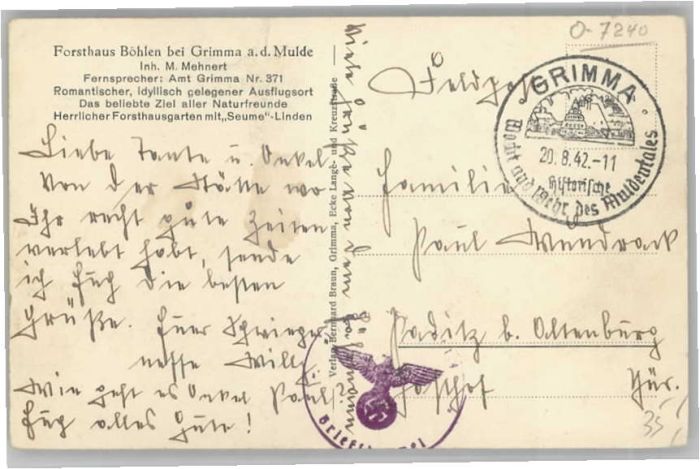 O-7240
Forsthaus Böhlen bei Grimma a. d. Mulde
Inh. M. Mehnert
Fernsprecher: Amt Grimma Nr. 371
Romantischer, idyllisch gelegener Ausflugsort
Das beliebte Ziel aller Naturfreunde
Herrlicher Forsthausgarten mit „Seume“-Linden
Liebe Tante u. Onkel
Von der Stätte wo
Ihr recht gute Zeiten
verlebt habt, sende
ich Euch die besten
Grüße. Euer Schwieger
neffe Willi
Wie geht es Onkel Paul?
Euch alles Gute!
Viele Grüße von dem
Verlag Bernhard Braun, Grimma, Ecke Lange- und Kreuzstraße
Feldpost
GRIMMA
20.8.42.-11
Historische
Wacht und Wehr des Muldentales
Familie
Paul Wundrack
Paditz b. Altenburg
Gasthof Thür.
35,-
Briefstempel